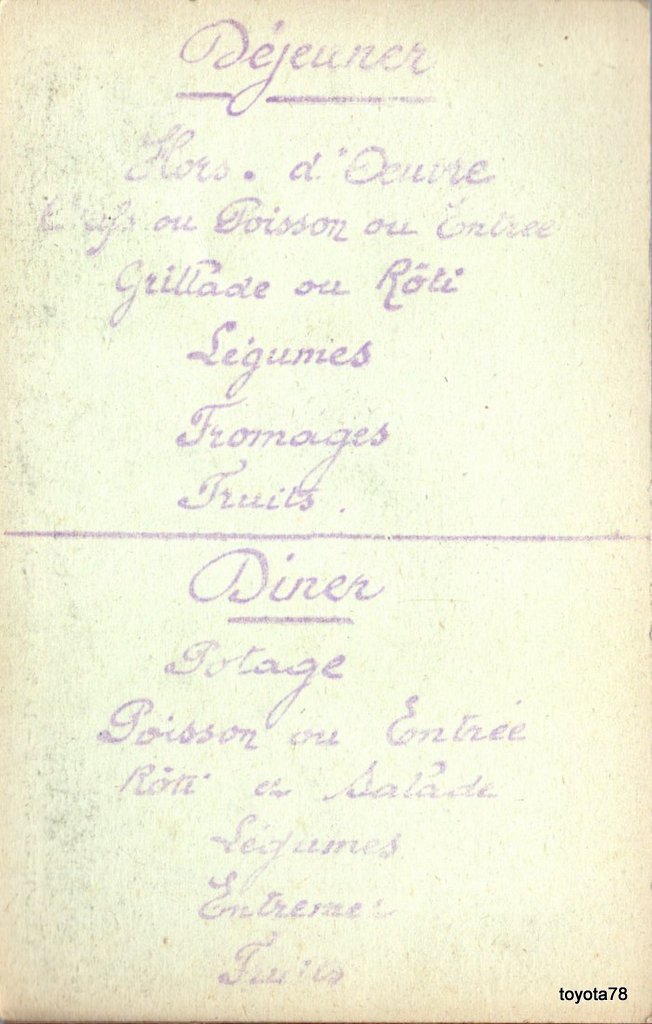 Déjeuner
Hors. d'Oeuvre
Oeufs ou Poisson ou Entrée
Grillade ou Rôti
Légumes
Fromages
Fruits.
Diner
Potage
Poisson ou Entrée
Rôti et Salade
Légumes
Entremet
Fruits
toyota78